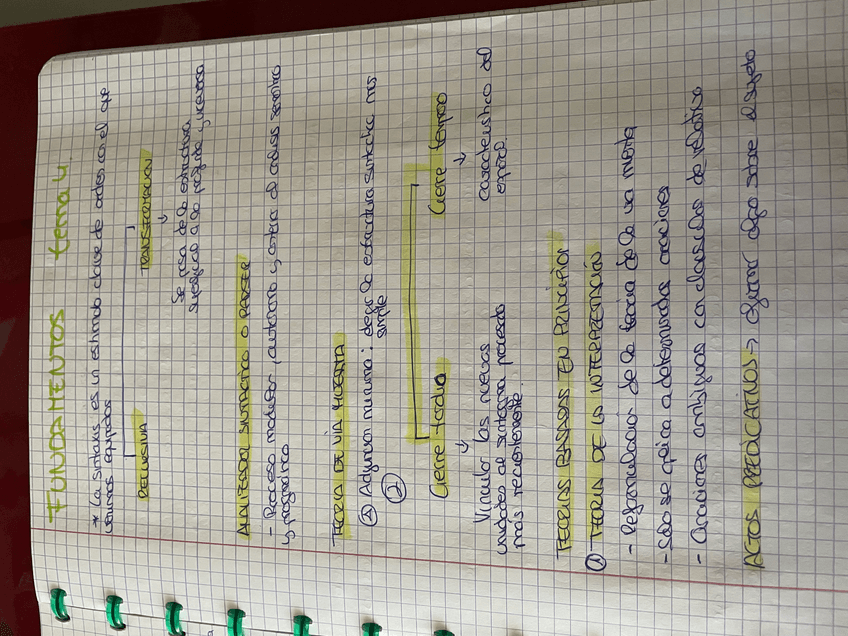 FUNDAMENTOS tema 4.
* La sintaxis es un estímulo clave de orden con el que
venimos equipados
RECURSIVA
TRANSFORMACIÓN
↓
Se pasa de la estructura
superficial a la profunda y viceversa
ANALIZADOR SINTÁCTICO O PARSER
- Proceso modular, autónomo y anterior al análisis semántico
y pragmático
TEORÍA DE VÍA MUERTA
① Adjunción mínima: elegir la estructura sintáctica más
simple
②
Cierre tardío
Cierre temprano
↓
↓
Vincular las nuevas
unidades al sintagma procesado
más recientemente.
característico del
español.
TEORÍAS BASADAS EN PRINCIPIOS
① TEORÍA DE LA INTERPRETACIÓN
- Reformulación de la teoría de la vía muerta
- Sólo se aplica a determinadas oraciones
- Oraciones ambiguas con cláusulas de relativo
ACTOS PREDICATIVOS → afirmar algo sobre el sujeto